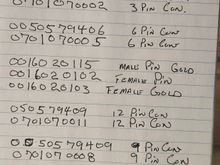 0701070002 3 PIN CON.
00505 79406 6 PIN CON
0701070005 6 PIN CON.
0016020115 MALE PIN GOLD
0016020102 FEMALE PIN
0016020103 FEMALE GOLD
0505 79409 12 PIN CON
0701070011 12 PIN CON.
00505 79409 9 PIN CON
0701070008 9 PIN CON.